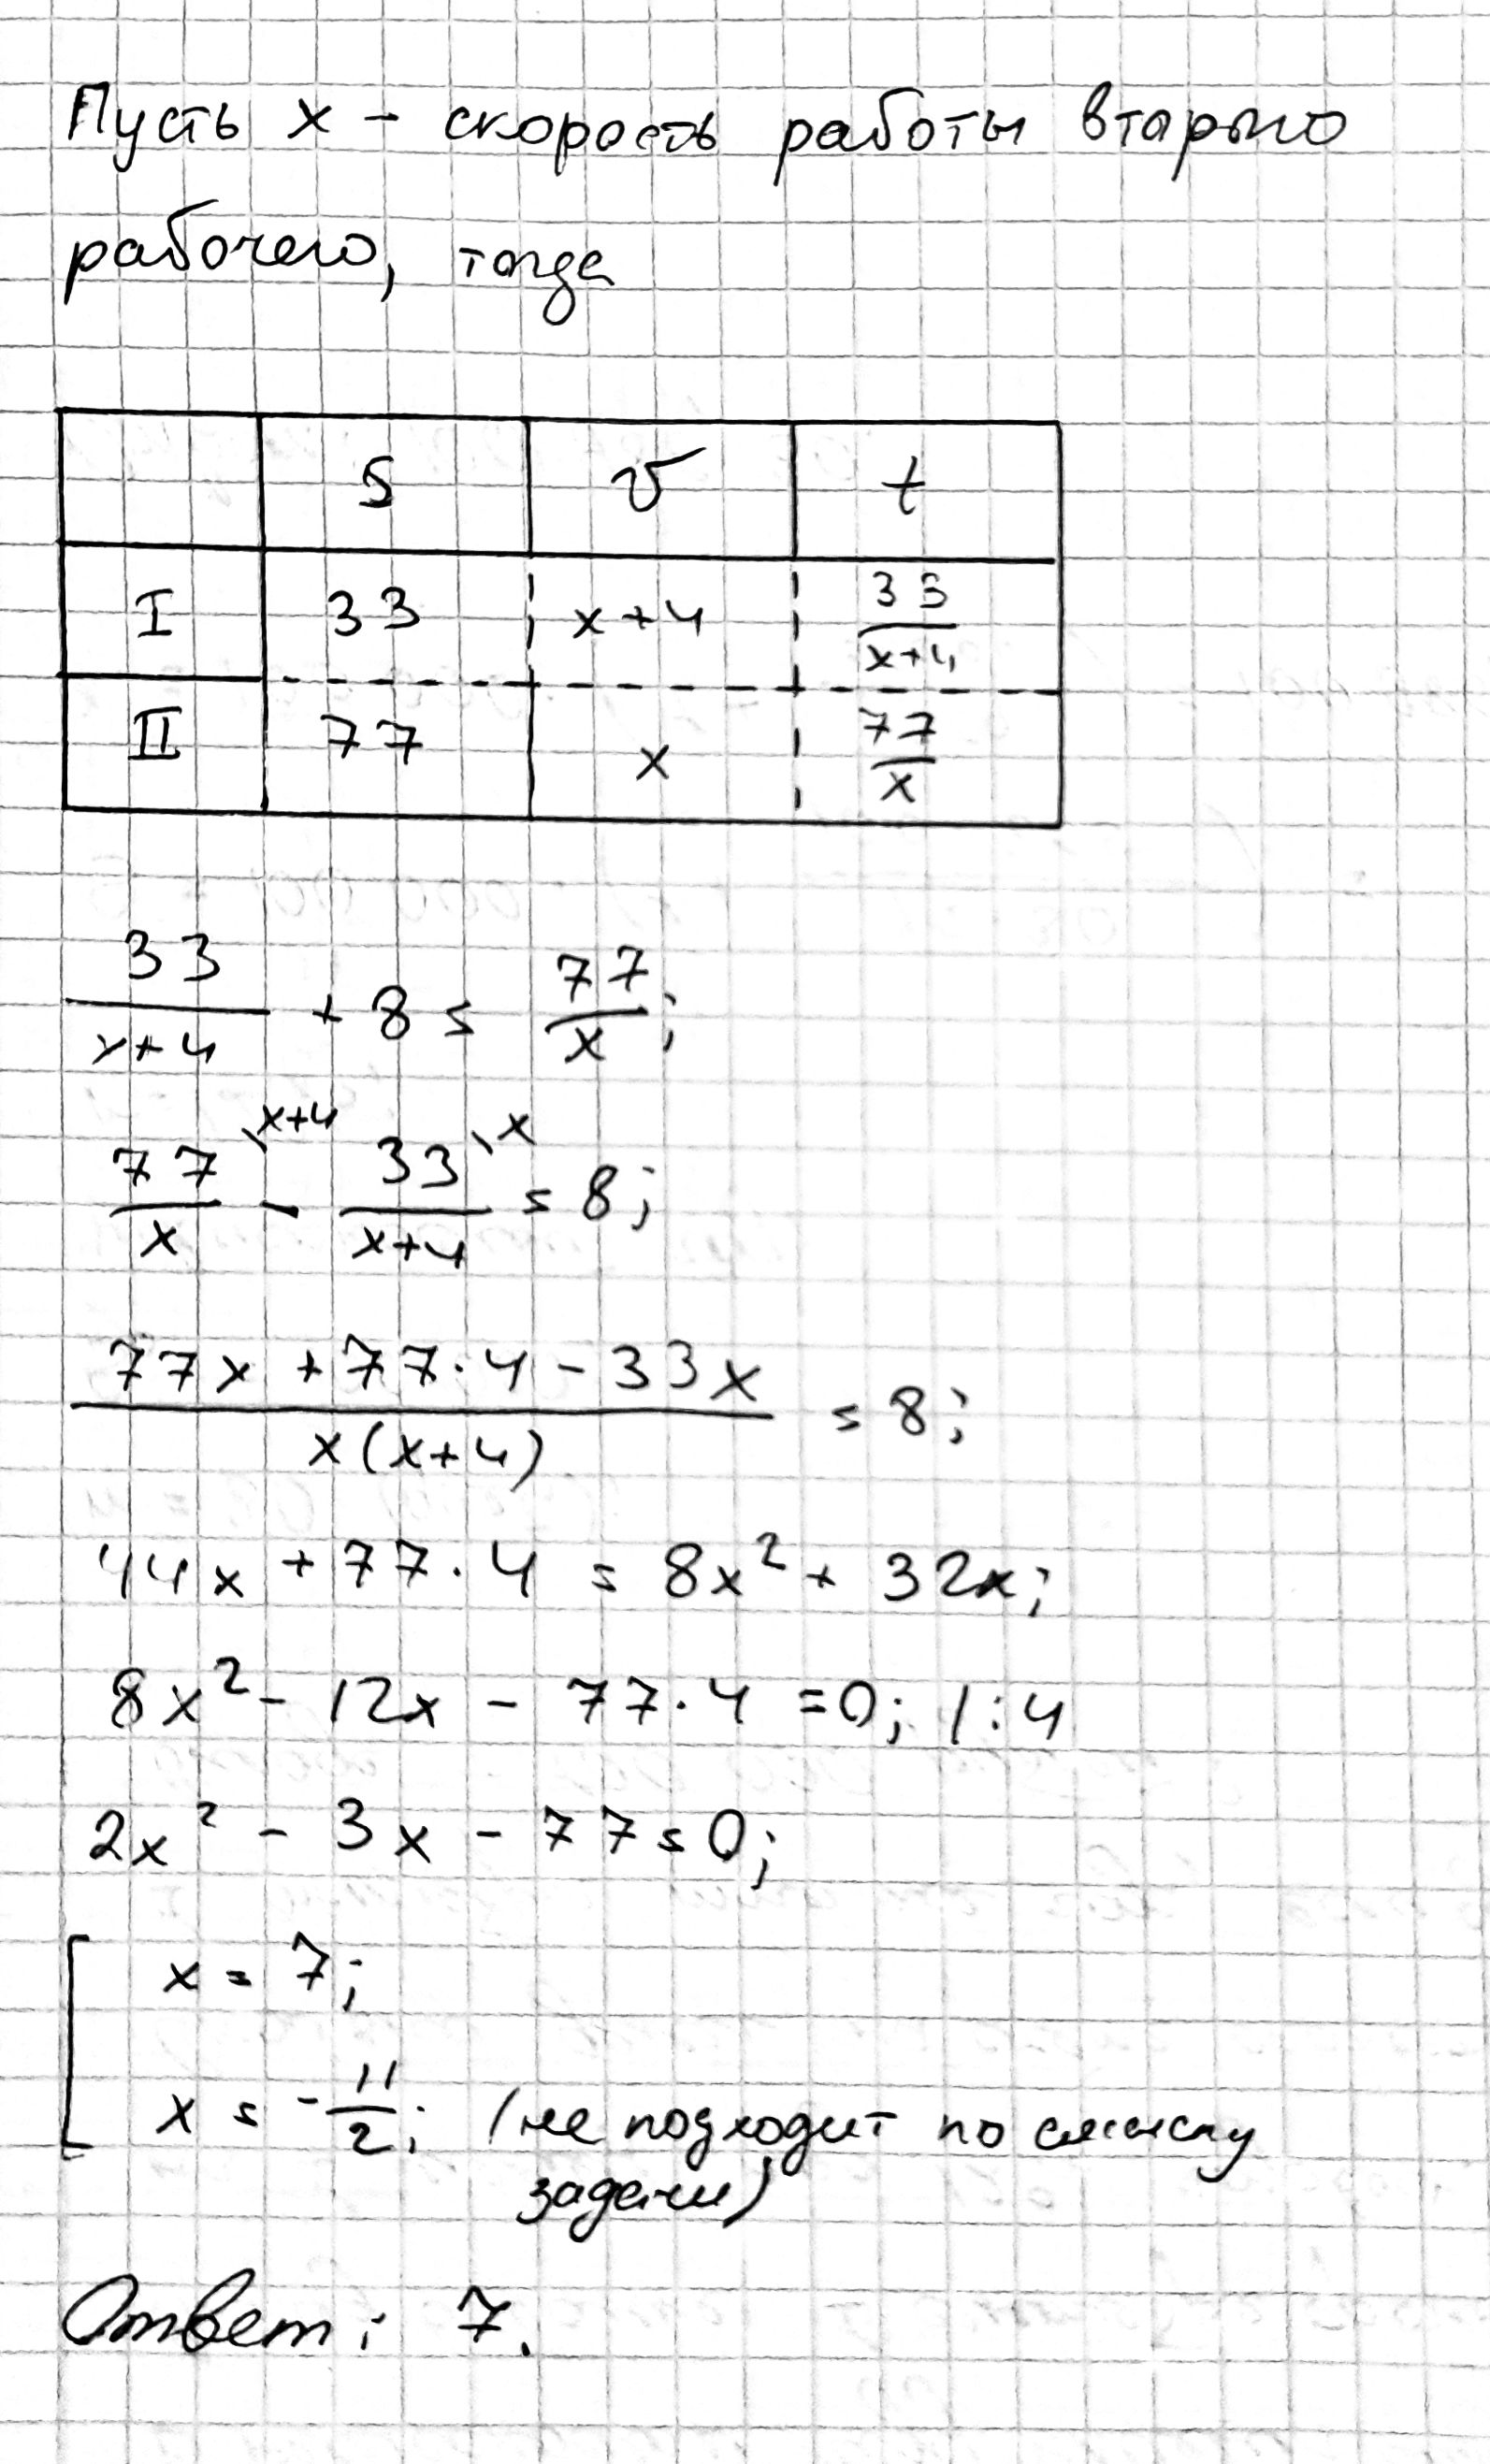 Пусть x – скорость работы второго
рабочего, тогда
S v t
I 33 x+4 33/(x+4)
II 77 x 77/x
33/(x+4) + 8 = 77/x;
77/x \x+4 - 33/(x+4) \x = 8;
(77x + 77·4 - 33x)/(x(x+4)) = 8;
44x + 77·4 = 8x² + 32x;
8x² - 12x - 77·4 = 0; |:4
2x² - 3x - 77 = 0;
[ x = 7;
x = -11/2; (не подходит по смыслу
задачи)
Ответ: 7.